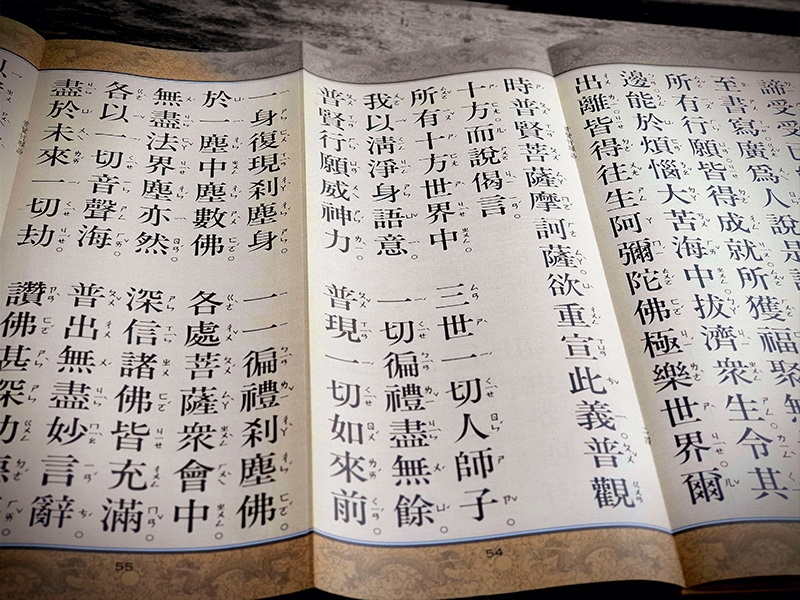 諦受受已
至書寫廣爲人說是
所有行願皆得成就所獲福聚無
邊能於煩惱大苦海中拔濟衆生令其
出離皆得往生阿彌陀佛極樂世界爾
時普賢菩薩摩訶薩欲重宣此義普觀
十方而說偈言。
所有十方世界中。三世一切人師子。
我以清淨身語意。一切徧禮盡無餘。
普賢行願威神力。普現一切如來前。
54
一身復現剎塵身。一一徧禮剎塵佛。
於一塵中塵數佛。各處菩薩衆會中。
無盡法界塵亦然。深信諸佛皆充滿。
各以一切音聲海。普出無盡妙言辭。
盡於未來一切劫。讚佛甚深功
55
以